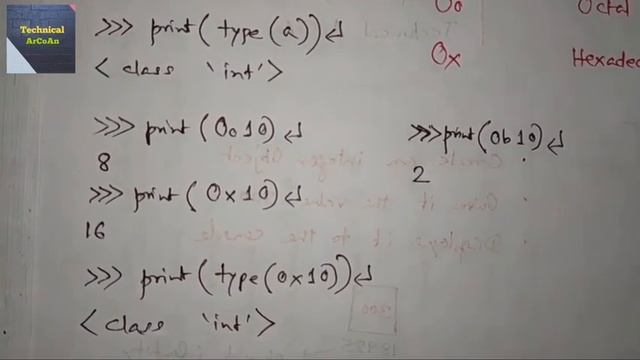 Technical
ArCoAn
>>> print(type(a))↵
<class 'int'>
0o Octal
0x Hexadec
>>> print(0o10)↵
8
>>> print(0b10)↵
2
>>> print(0x10)↵
16
>>> print(type(0x10))↵
<class 'int'>